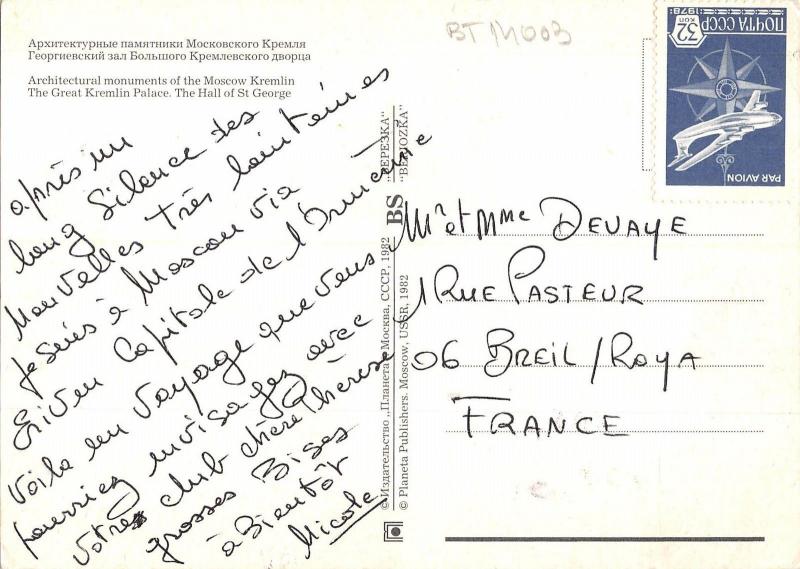 Архитектурные памятники Московского Кремля
Георгиевский зал Большого Кремлевского дворца
Architectural monuments of the Moscow Kremlin
The Great Kremlin Palace. The Hall of St George
BT 14003
32 КОП
ПОЧТА СССР
1978
PAR AVION
après un
long silence des
nouvelles très lointaines
je suis à Moscou via
Erivan Capitale de l'Arménie
Voila un voyage que vous
pourriez envisager avec
votre club chère Thérèse
grosses Bises
à Bientôt
Nicole
© Издательство „Планета" Москва, СССР, 1982
© Planeta Publishers. Moscow, USSR, 1982
BS
"БЕРЕЗКА"
"BERIOZKA"
Mr et Mme DEVAYE
1 RUE PASTEUR
06 BREIL/ROYA
FRANCE